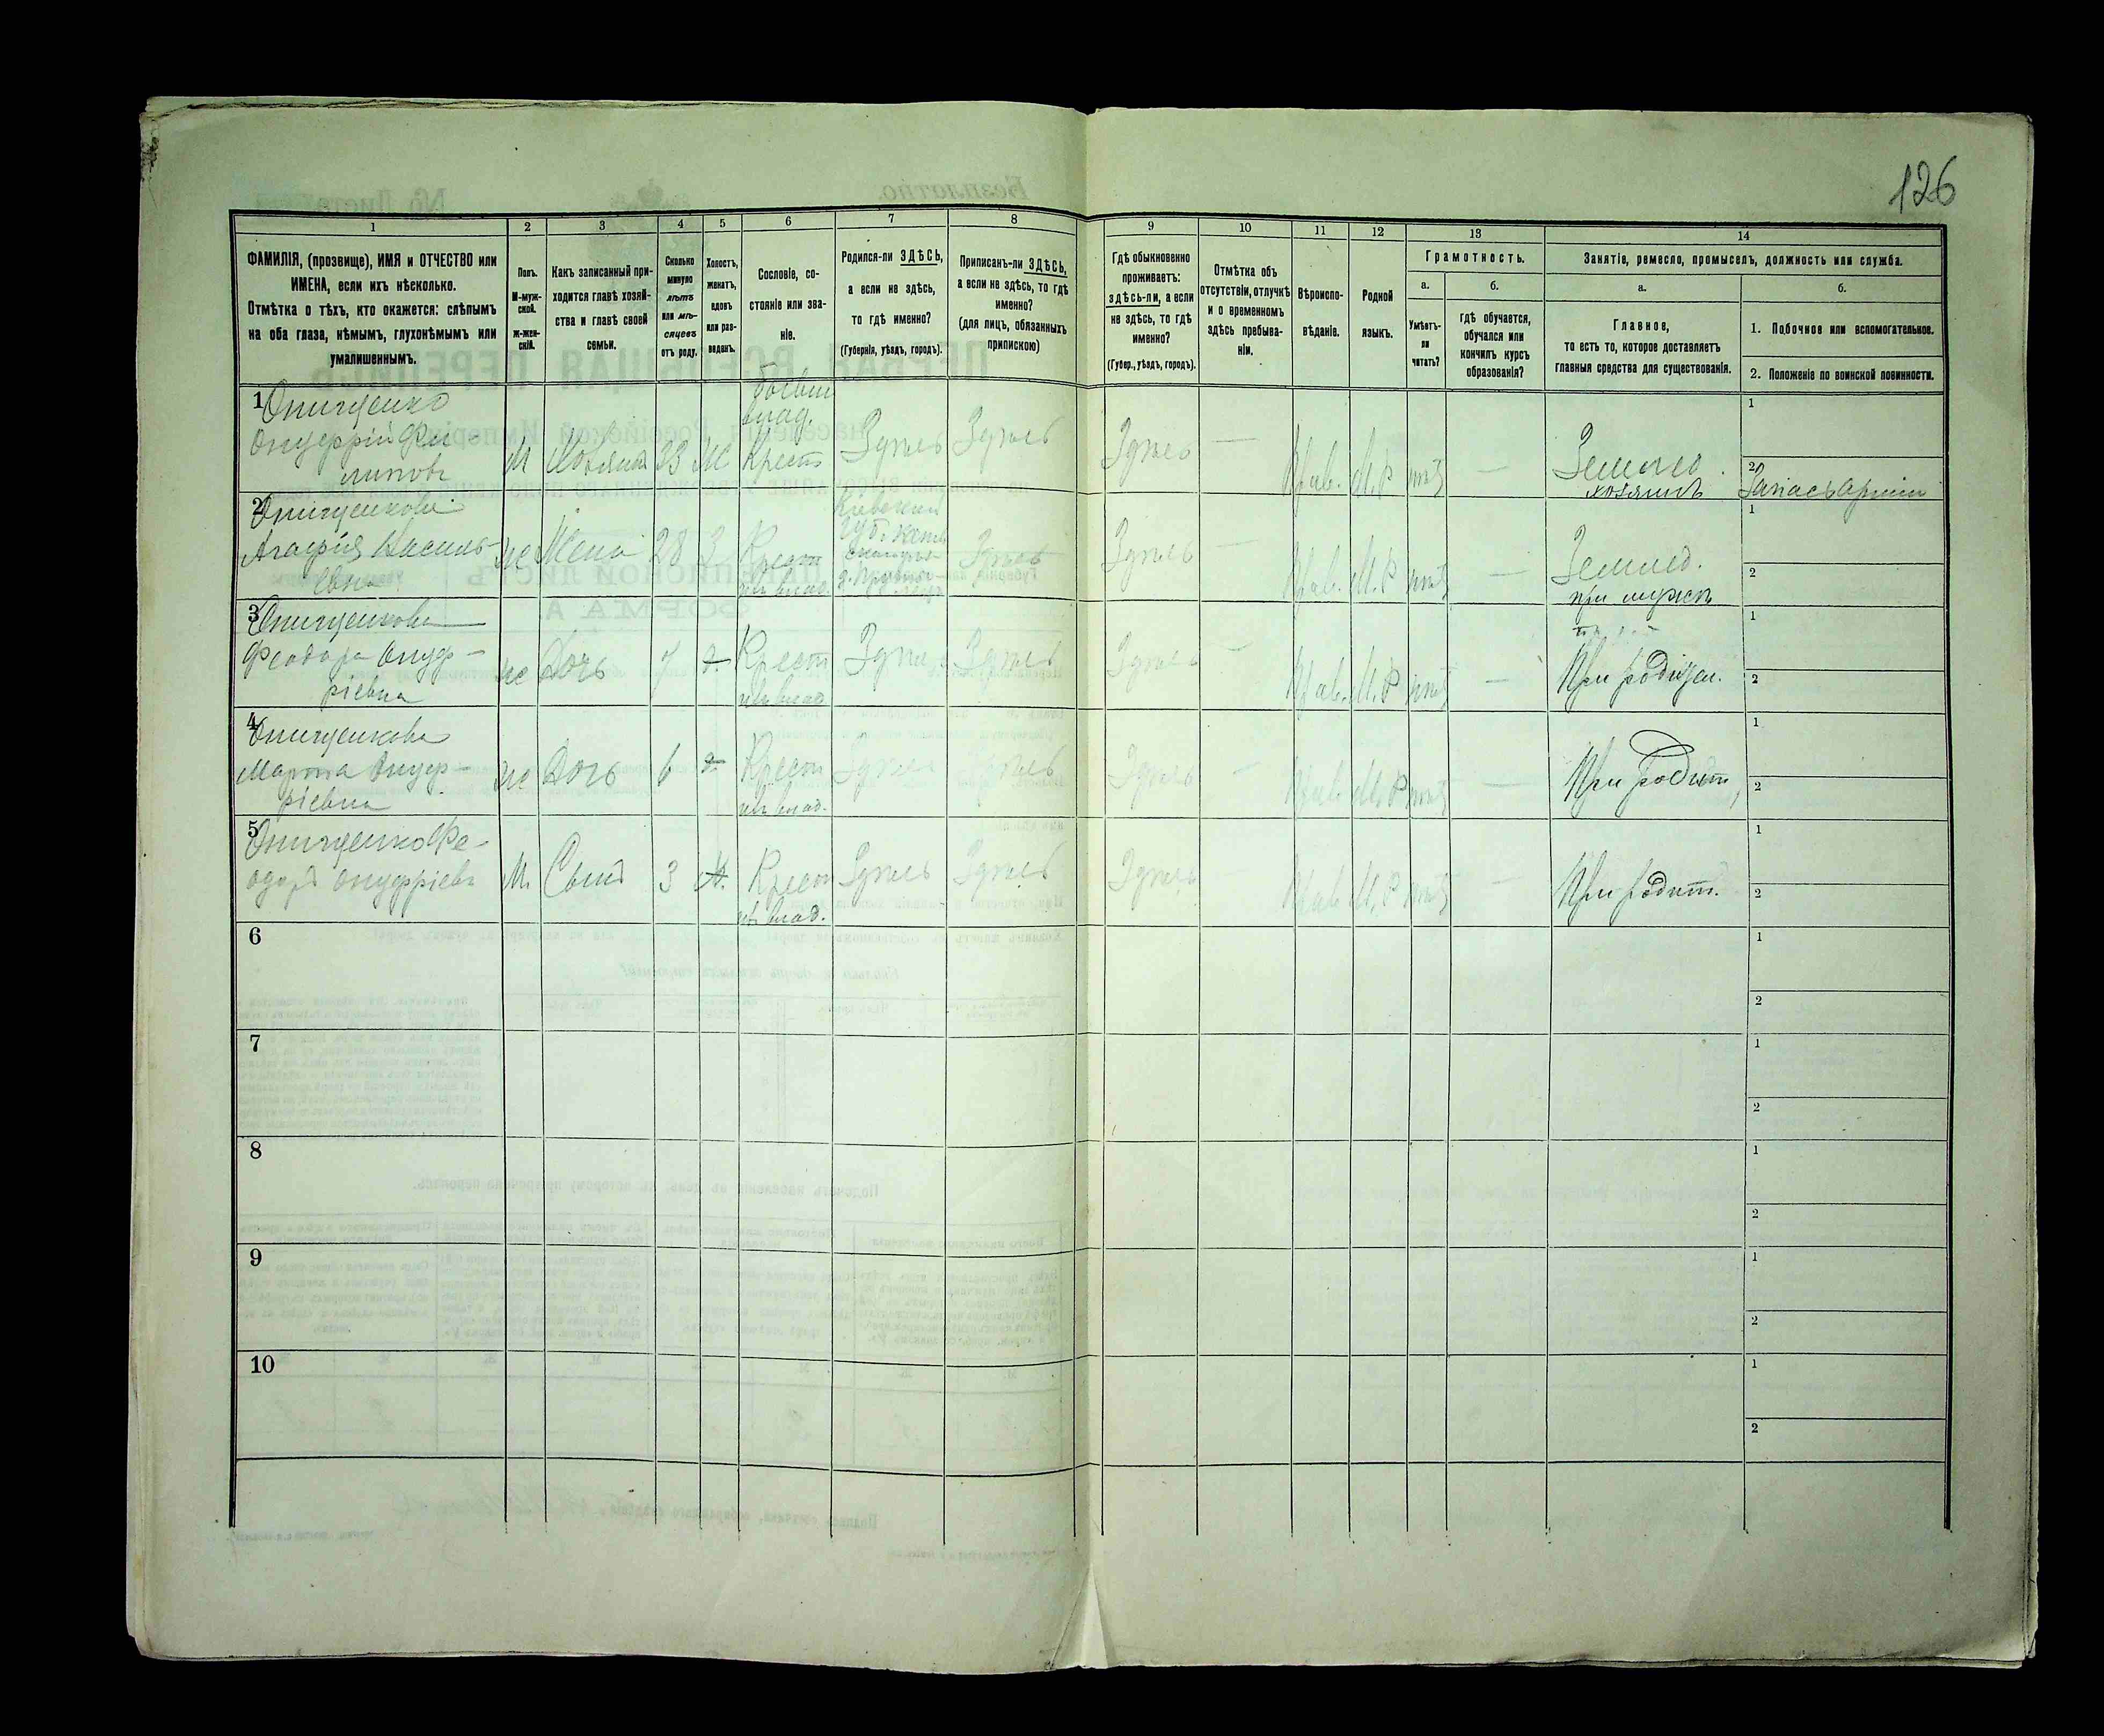 126
1 2 3 4 5 6 7 8 9 10 11 12 13 14
ФАМИЛІЯ, (прозвище), ИМЯ и ОТЧЕСТВО или
ИМЕНА, если ихъ нѣсколько.
Отмѣтка о тѣхъ, кто окажется: слѣпымъ
на оба глаза, нѣмымъ, глухонѣмымъ или
умалишеннымъ.
Полъ.
М-муж-
ской.
Ж-жен-
скій.
Какъ записанный при-
ходится главѣ хозяй-
ства и главѣ своей
семьи.
Сколько
минуло
лѣтъ
или мѣ-
сяцевъ
отъ роду.
Холостъ,
женатъ,
вдовъ
или раз-
веденъ.
Сословіе, со-
стояніе или зва-
ніе.
Родился-ли ЗДѢСЬ,
а если не здѣсь,
то гдѣ именно?
(Губернія, уѣздъ, городъ).
Приписанъ-ли ЗДѢСЬ,
а если не здѣсь, то гдѣ
именно?
(для лицъ, обязанныхъ
припискою)
Гдѣ обыкновенно
проживаетъ:
здѣсь-ли, а если
не здѣсь, то гдѣ
именно?
(Губер., уѣздъ, городъ).
Отмѣтка объ
отсутствіи, отлучкѣ
и о временномъ
здѣсь пребыва-
ніи.
Вѣроиспо-
вѣданіе.
Родной
языкъ.
Грамотность.
а.
Умѣетъ-
ли
читать?
б.
гдѣ обучается,
обучался или
кончилъ курсъ
образованія?
Занятіе, ремесло, промыселъ, должность или служба.
а.
Главное,
то есть то, которое доставляетъ
главныя средства для существованія.
б.
1. Побочное или вспомогательное.
2. Положеніе по воинской повинности.
1 Онищенко
Онуфрій Фи-
липовъ
М
Хозяинъ
33
Ж
владѣл.
Крест
Здѣсь
Здѣсь
Здѣсь
—
Прав.
М.Р
нѣтъ
—
Землед.
хозяинъ
1
2 Запасъ арміи
2 Онищенкова
Агафія Василь-
евна
ж
Жена
28
З
Крест
из влад.
Кіевской
губ.
Здѣсь
Здѣсь
—
Прав.
М.Р
нѣтъ
—
Землед.
при мужѣ
1
2
3 Онищенкова
Феодора Онуф-
ріевна
ж
Дочь
7
Крест
из влад
Здѣсь
Здѣсь
Здѣсь
—
Прав.
М.Р
нѣтъ
—
При родител.
1
2
4 Онищенкова
Марфа Онуф-
ріевна
ж
Дочь
6
Крест
из влад.
Здѣсь
Здѣсь
Здѣсь
—
Прав.
М.Р
нѣтъ
—
При родит,
1
2
5 Онищенко Фе-
одоръ Онуфріевъ
М.
Сынъ
3
Крест
из влад.
Здѣсь
Здѣсь
Здѣсь
—
Прав
М.Р
нѣтъ
—
При родит.
1
2
6
1
2
7
1
2
8
1
2
9
1
2
10
1
2